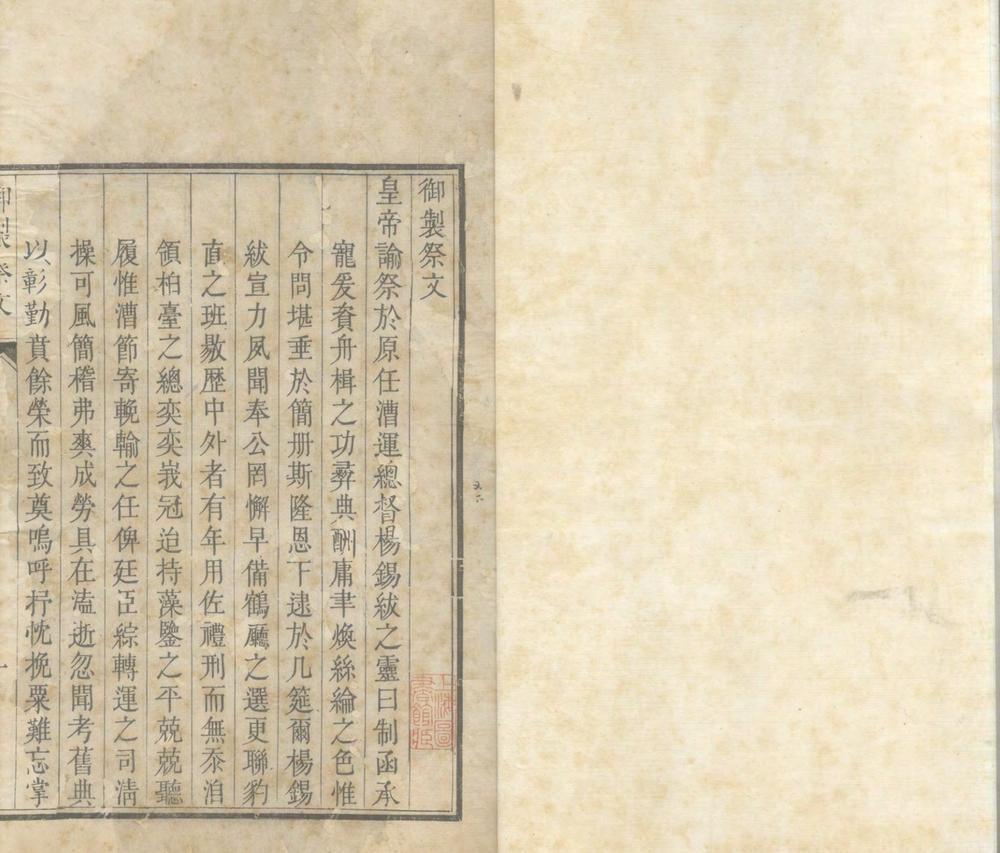 御製祭文
皇帝諭祭於原任漕運總督楊錫紱之靈曰制函承
寵爰賚舟楫之功彛典酬庸聿煥絲綸之色惟
令問堪垂於簡册斯隆恩下逮於几筵爾楊錫
紱宣力夙聞奉公罔懈早備鶴廳之選更聯豹
直之班敭歴中外者有年用佐禮刑而無忝洎
領柏臺之總奕奕峩冠迨持藻鑒之平兢兢聽
履惟漕節寄輓輸之任俾廷臣綜轉運之司淸
操可風簡稽弗爽成勞具在溘逝忽聞考舊典
以彰勤賁餘榮而致奠嗚呼抒忱挽粟難忘掌
御製祭文
上海圖
書館藏